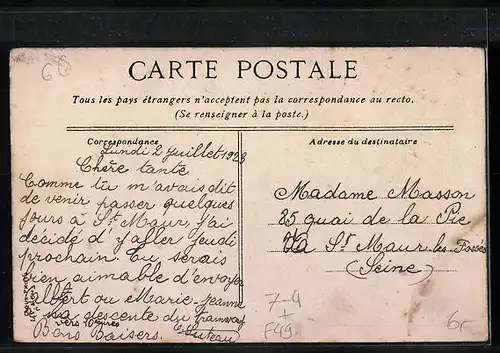 68
CARTE POSTALE
Tous les pays étrangers n'acceptent pas la correspondance au recto.
(Se renseigner à la poste.)
Correspondance
Adresse du destinataire
Lundi 2 Juillet 1923
Chère tante
Comme tu m'avais dit
de venir passer quelques
jours à St Maur, j'ai
décidé d'y aller jeudi
prochain. Tu serais
bien aimable d'envoyer
Albert ou Marie-Jeanne
à la descente du tramway
vers 10
Bons Baisers.
Madame Masson
35 quai de la Pie
St Maur-les-Fossés
(Seine)
7-4
+
F49
6-